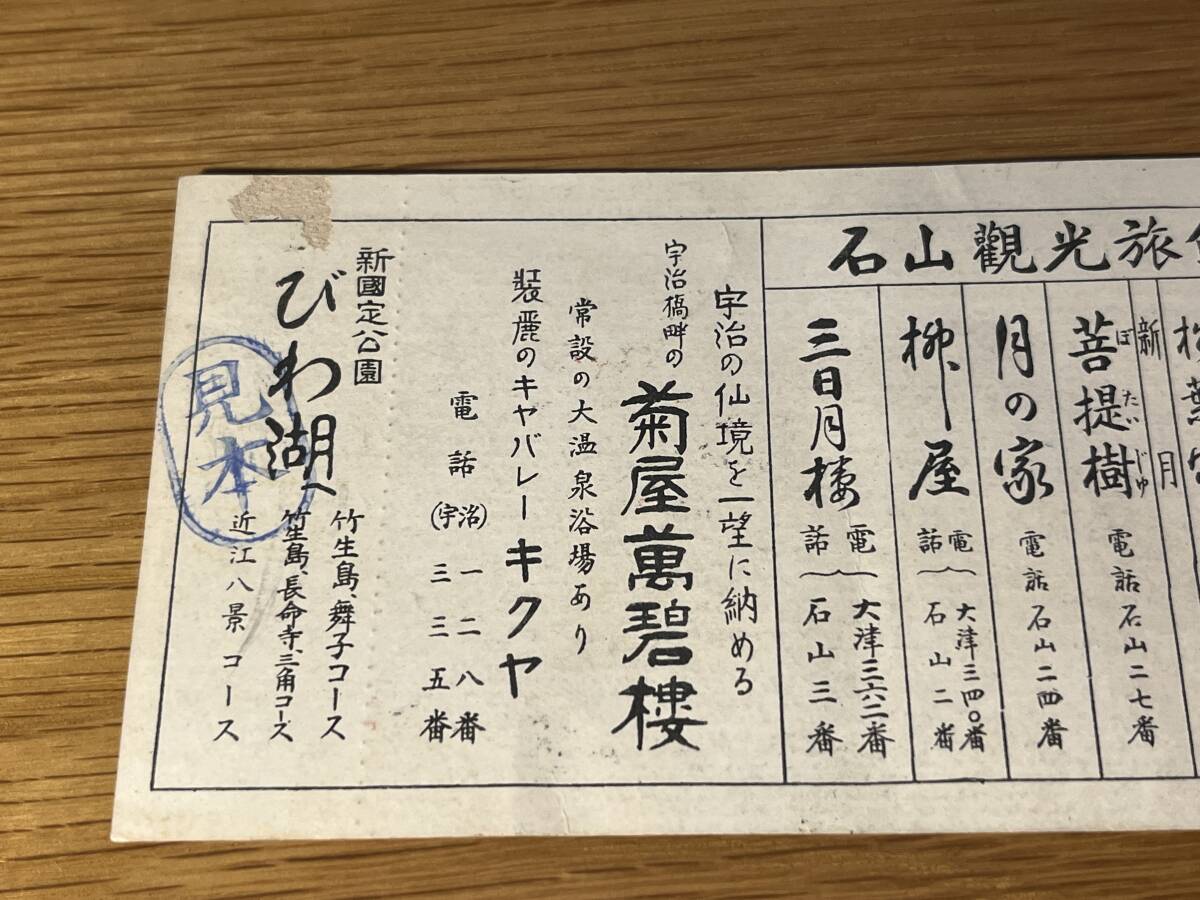 石山觀光旅
新月
菩提樹
ぼたいじゆ
電話石山二七番
月の家
電話石山二四番
柳屋
電話 大津三四〇番
石山二番
三日月樓
電話 大津三六二番
石山三番
宇治の仙境を一望に納める
宇治橋畔の
菊屋萬碧樓
常設の大温泉浴場あり
装麗のキャバレーキクヤ
電話(宇治)一二八番
三三五番
新國定公園
びわ湖へ
竹生島、舞子コース
竹生島、長命寺、三角コース
近江八景コース
見本